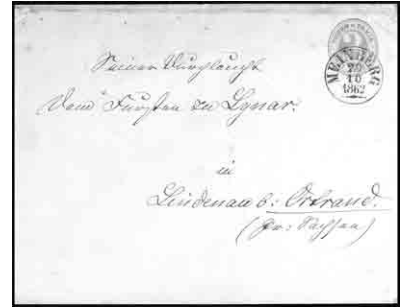 MEINBERG
20
10
1862
Seiner Durchlaucht
dem Fürsten zu Lynar
in
Lindenau b: Ortrand.
(Pr: Sachsen)